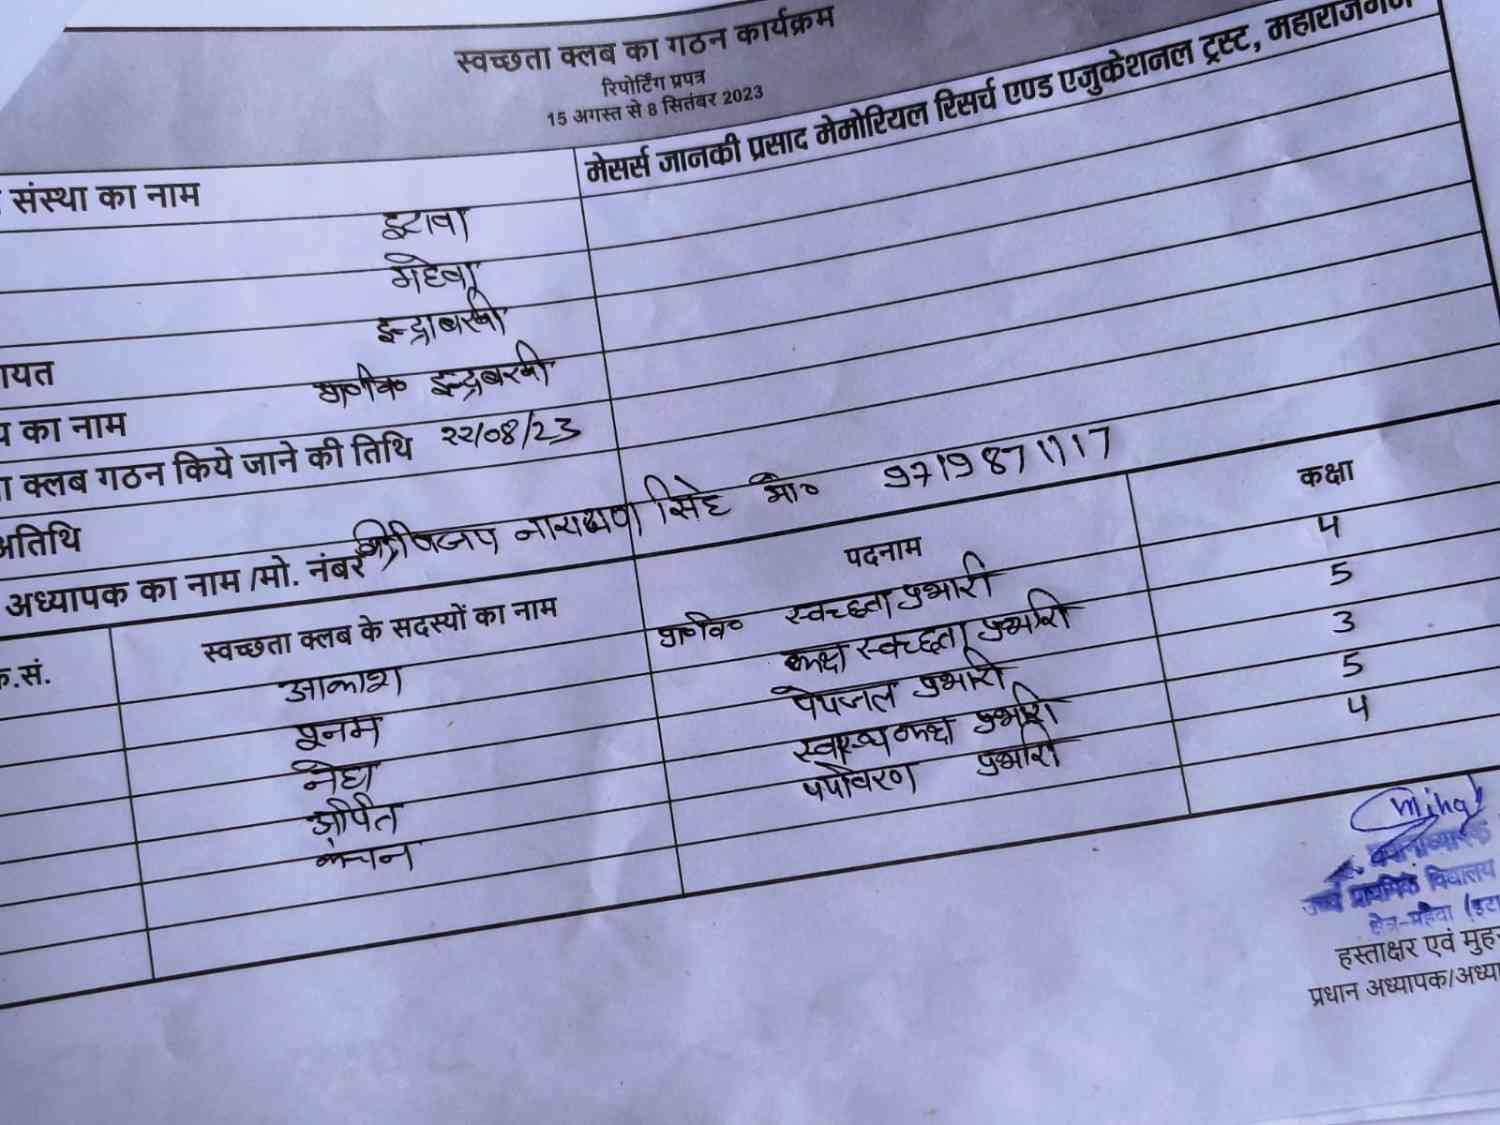 स्वच्छता क्लब का गठन कार्यक्रम
रिपोर्टिंग प्रपत्र
15 अगस्त से 8 सितंबर 2023
संस्था का नाम मेसर्स जानकी प्रसाद मेमोरियल रिसर्च एण्ड एजुकेशनल ट्रस्ट, महाराजगंज
इटावा
महेवा
यत इन्द्राबखी
का नाम प्रा०वि० इन्द्राबखी
क्लब गठन किये जाने की तिथि २२/०8/23
अतिथि
अध्यापक का नाम /मो. नंबर श्री विजय नारायण सिंह मो० 9719871117
क.सं. स्वच्छता क्लब के सदस्यों का नाम पदनाम कक्षा
आकाश प्रा०वि० स्वच्छता प्रभारी 4
पूनम कक्ष स्वच्छता प्रभारी 5
नेहा पेयजल प्रभारी 3
अर्पित स्वास्थ कक्ष प्रभारी 5
कंचन पर्यावरण प्रभारी 4
प्रधानाध्यापक
उच्च प्राथमिक विद्यालय
क्षेत्र-महेवा (इटा
हस्ताक्षर एवं मुह
प्रधान अध्यापक/अध्या